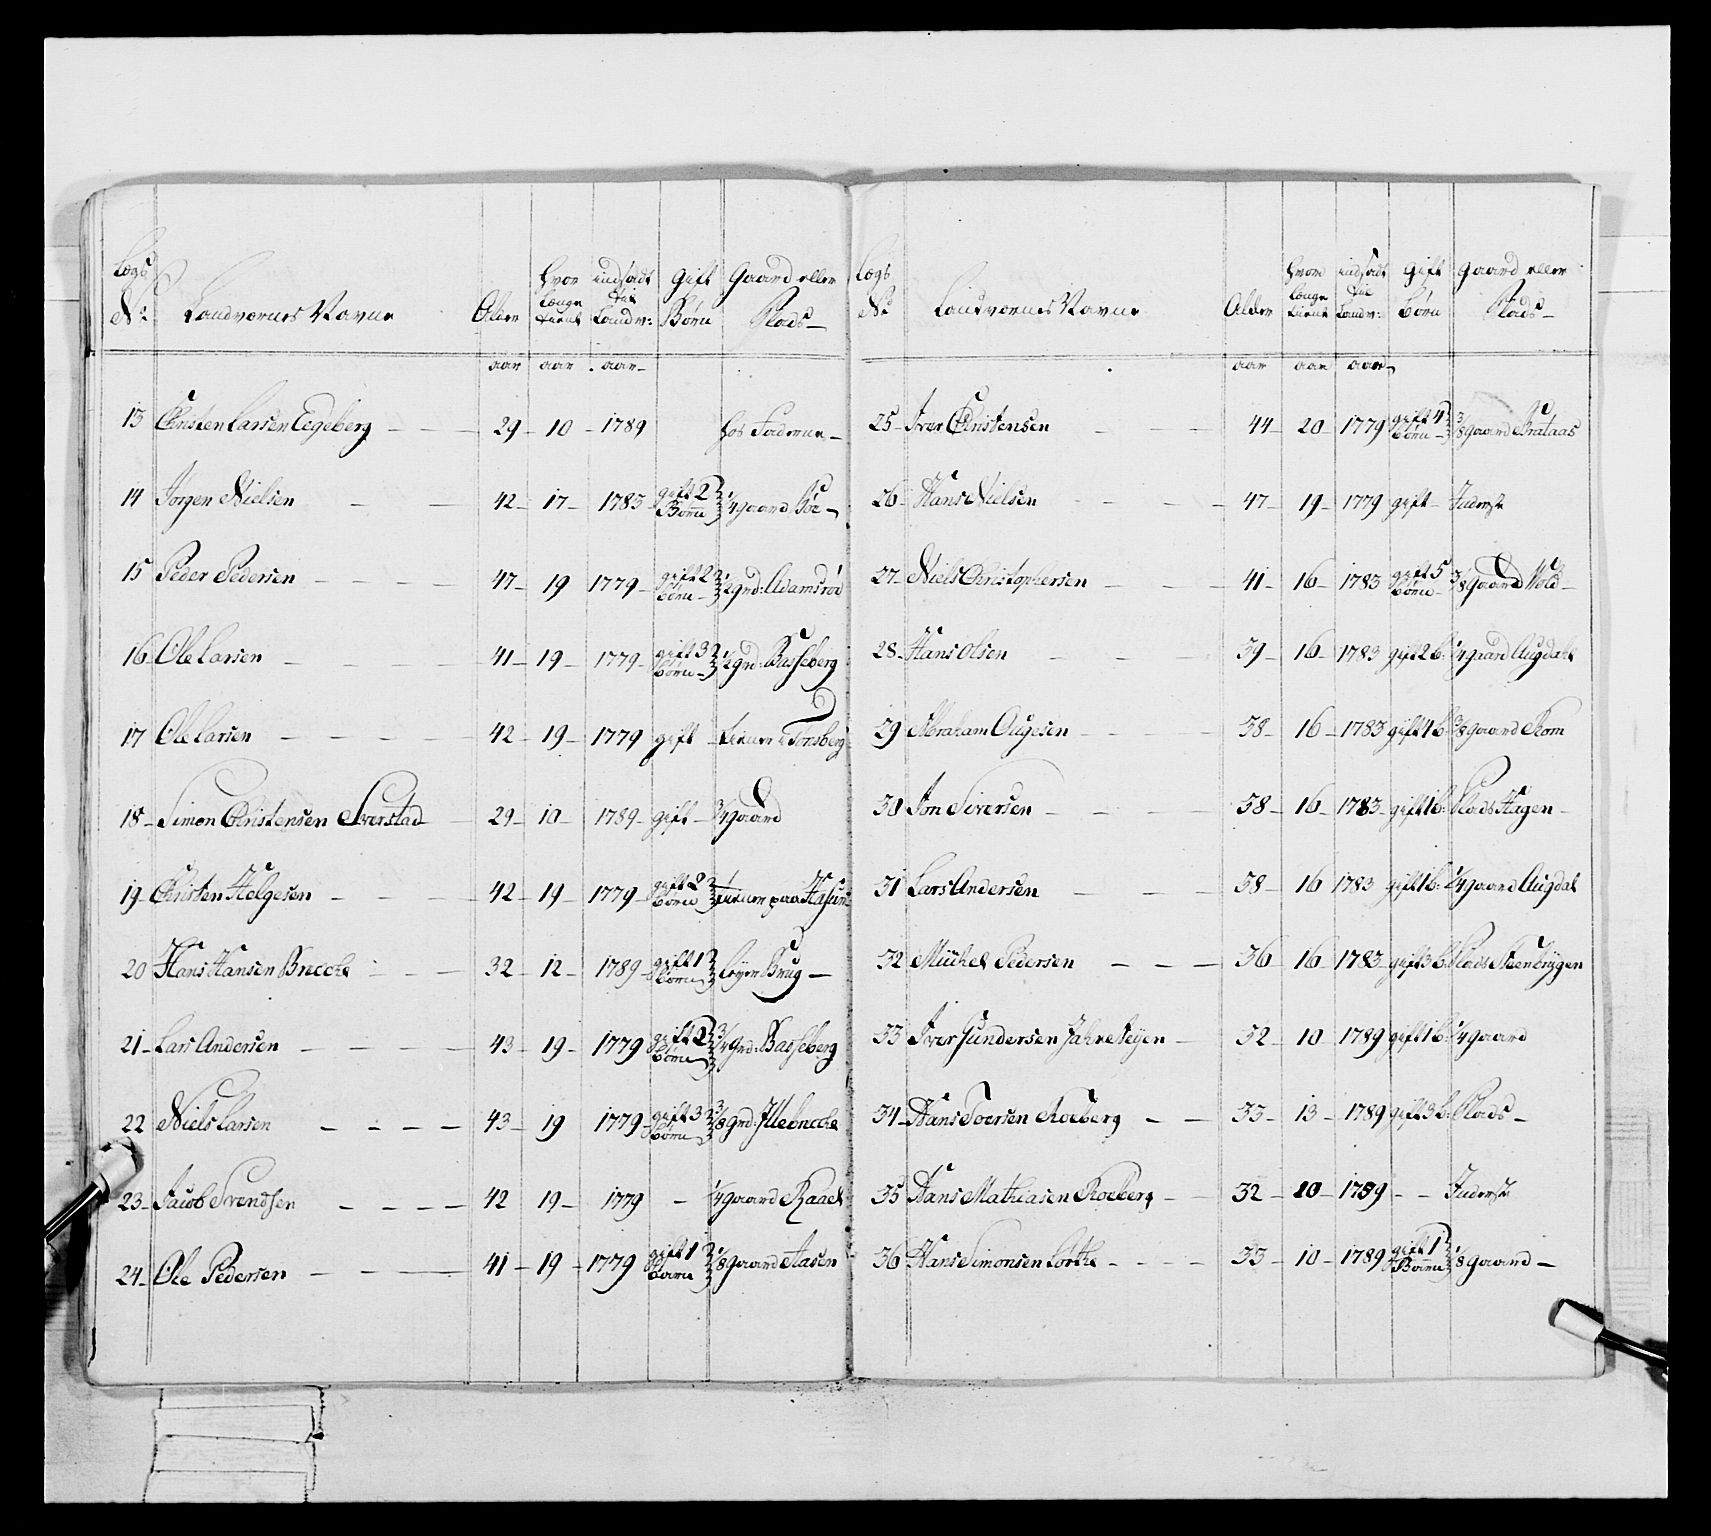 Lægs N: Landværnes Navne Alder hvor længe tient indsadt til Landv: gift Børn Gaard eller Plads
aar aar aar
13 Christen Larsen Eegeberg 29 10 1789 hos Faderne
14 Jørgen Nielsen 42 17 1783 gift 2 Børn 1/4 gaard Bøe
15 Peder Pedersen 47 19 1779 gift 2 børn 1/2 grd: Adamsrød
16 Ole Larsen 41 19 1779 gift 3 børn 1/2 grd: Basseberg
17 Ole Larsen 42 19 1779 gift tiener i Tønsberg
18 Simon Christensen Sverstad 29 10 1789 gift 3/4 gaard
19 Christen Helgesen 42 19 1779 gift 2 børn tiener paa
20 Hans Hansen Brecke 32 12 1789 gift 1 børn Brug
21 Lars Andersen 43 19 1779 gift 2 børn 3/4 grd: Basseberg
22 Niels Larsen 43 19 1779 gift 3 børn 3/8 grd: Illebrecke
23 Jacob Svendsen 42 19 1779 1/4 gaard Raael
24 Ole Pedersen 41 19 1779 gift 1 barn 1/8 gaard Aasen
Lægs N: Landværnes Navne Alder hvor længe tient indsadt til Landv: gift børn gaard eller Plads
aar aar aar
25 Iver Christensen 44 20 1779 gift 4 børn 3/8 gaard Brataas
26 Hans Nielsen 47 19 1779 gift Inderst
27 Niels Christophersen 41 16 1783 gift 5 børn 3/8 gaard Vold
28 Hans Olsen 39 16 1783 gift 2 b: 1/4 gaard Augdahl
29 Abraham Augesen 38 16 1783 gift 1 b: 3/8 gaard Rom
30 Jon Siversen 38 16 1783 gift 1 b: Plads Hagen
31 Lars Andersen 38 16 1783 gift 1 b: 1/4 gaard Augdal
32 Michel Pedersen 36 16 1783 gift 3 b: Plads Steenbrygen
33 Iver Gundersen 32 10 1789 gift 1 b: 1/4 gaard
34 Hans Toersen Roeberg 33 13 1789 gift 3 b: Plads
35 Hans Mathiasen Roeberg 32 10 1789 Inderst
36 Hans Simonsen Lørke 33 10 1789 gift 1 Barn 1/8 gaard